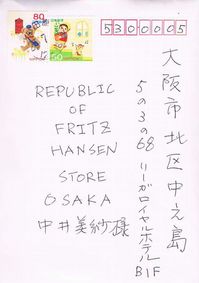 80
50
5300005
大阪市北区中之島
5の3の68 リーガロイヤルホテル
B1F
REPUBLIC
OF
FRITZ
HANSEN
STORE
OSAKA
中井美紗様